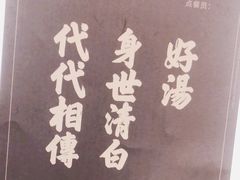 点餐员：
好湯
身世清白
代代相傳